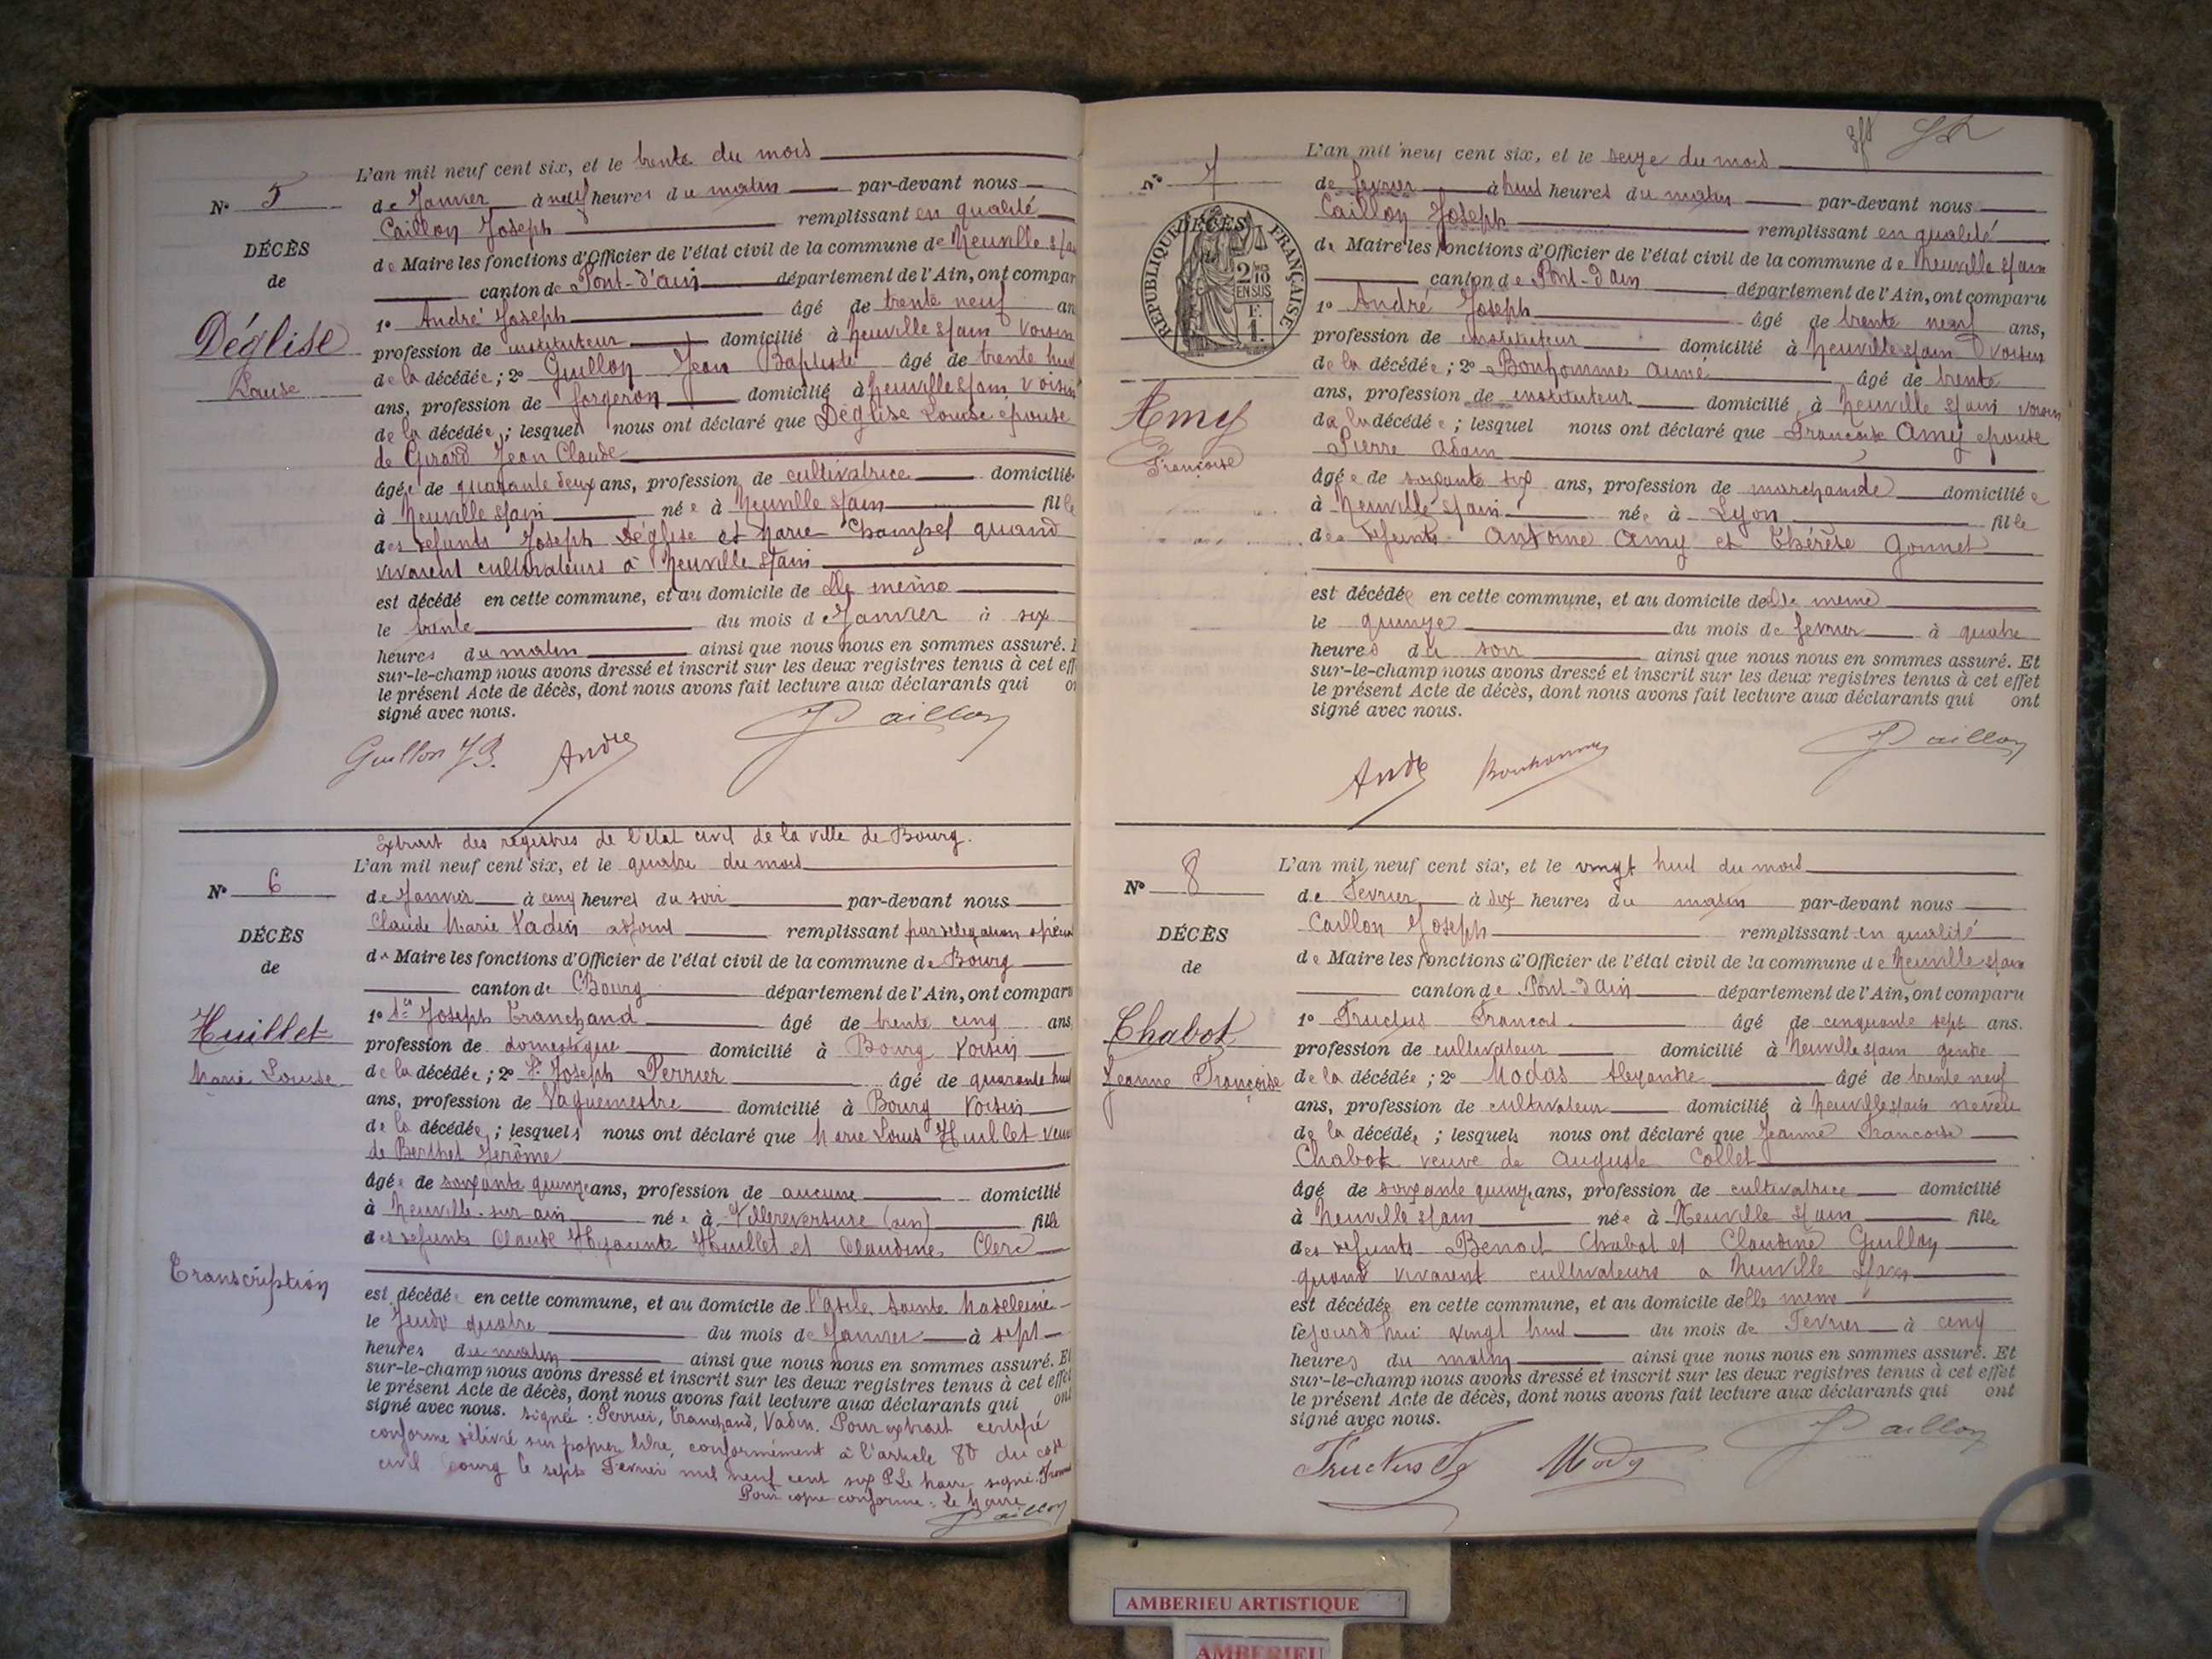 L'an mil neuf cent six, et le trente du mois
N° 5
de Janvier à neuf heures du matin par-devant nous
Caillon Joseph remplissant en qualité
DÉCÈS
de Maire les fonctions d'Officier de l'état civil de la commune de Neuville s/ain
de
canton de Pont-d'ain département de l'Ain, ont compar
Déglise
1° André Joseph âgé de trente neuf an
profession de instituteur domicilié à Neuville s/ain voisin
Louise
de la décédée; 2° Guillon Jean Baptiste âgé de trente huit
ans, profession de forgeron domicilié à Neuville s/ain voisin
de la décédée; lesquels nous ont déclaré que Déglise Louise épouse
de Girard Jean Claude
âgée de quarante deux ans, profession de cultivatrice domiciliée
à Neuville s/ain née à Neuville s/ain fille
des défunts Joseph Déglise et Marie Champel quand
vivaient cultivateurs à Neuville s/ain
est décédé en cette commune, et au domicile de Elle même
le trente du mois de Janvier à six
heures du matin ainsi que nous nous en sommes assuré.
sur-le-champ nous avons dressé et inscrit sur les deux registres tenus à cet eff
le présent Acte de décès, dont nous avons fait lecture aux déclarants qui on
signé avec nous.
Guillon J B. André Caillon
Extrait des registres de l'état civil de la ville de Bourg.
L'an mil neuf cent six, et le quatre du mois
N° 6
de Janvier à cinq heures du soir par-devant nous
Claude Marie Vadin adjoint remplissant par délégation spéciale
DÉCÈS
de Maire les fonctions d'Officier de l'état civil de la commune de Bourg
de
canton de Bourg département de l'Ain, ont comparu
Huillet
1° Joseph Tranchand âgé de trente cinq ans
profession de domestique domicilié à Bourg voisin
Marie Louise
de la décédée; 2° Joseph Perrier âgé de quarante huit
ans, profession de Vaguemestre domicilié à Bourg voisin
de la décédée; lesquels nous ont déclaré que Marie Louis Huillet veuve
de Berthet Jérôme
âgée de soixante quinze ans, profession de aucune domicilié
à Neuville-sur-ain née à Villereversure (ain) fille
des défunts Claude Hyacinte Huillet et Claudine Clerc
Transcription
est décédée en cette commune, et au domicile de l'asile Sainte Madeleine
le Jeudi quatre du mois de Janvier à sept
heures du matin ainsi que nous nous en sommes assuré. Et
sur-le-champ nous avons dressé et inscrit sur les deux registres tenus à cet effet
le présent Acte de décès, dont nous avons fait lecture aux déclarants qui ont
signé avec nous. signé: Perrier, Tranchand, Vadin. Pour extrait certifié
conforme délivré sur papier libre, conformément à l'article 80 du code
civil Bourg le sept Février mil neuf cent six P. Le Maire, signé
Pour copie conforme: le Maire
Caillon
L'an mil neuf cent six, et le seize du mois
N° 7
de fevrier à huit heures du matin par-devant nous
Caillon Joseph remplissant en qualité
DÉCÈS
RÉPUBLIQUE FRANÇAISE
2 10
EN SUS
F.
1.
de Maire les fonctions d'Officier de l'état civil de la commune de Neuville s/ain
canton de Pont-d'ain département de l'Ain, ont comparu
1° André Joseph âgé de trente neuf ans,
profession de instituteur domicilié à Neuville s/ain voisin
de la décédée; 2° Bonhomme aimé âgé de trente
Amy
ans, profession de instituteur domicilié à Neuville s/ain voisin
de la décédée; lesquel nous ont déclaré que Françoise Amy épouse
Françoise
Pierre Adam
âgée de soixante six ans, profession de marchande domiciliée
à Neuville s/ain née à Lyon fille
des défunts Antoine Amy et Thérèse Gonnet
est décédée en cette commune, et au domicile de Elle meme
le quinze du mois de fevrier à quatre
heures du soir ainsi que nous nous en sommes assuré. Et
sur-le-champ nous avons dressé et inscrit sur les deux registres tenus à cet effet
le présent Acte de décès, dont nous avons fait lecture aux déclarants qui ont
signé avec nous.
André Bonhomme Caillon
L'an mil neuf cent six, et le vingt huit du mois
N° 8
de Fevrier à dix heures du matin par-devant nous
Caillon Joseph remplissant en qualité
DÉCÈS
de Maire les fonctions d'Officier de l'état civil de la commune de Neuville s/ain
de
canton de Pont-d'ain département de l'Ain, ont comparu
Chabot
1° Fructus Francois âgé de cinquante sept ans.
profession de cultivateur domicilié à Neuville s/ain gendre
Jeanne Françoise
de la décédée; 2° Modas Alexandre âgé de trente neuf
ans, profession de cultivateur domicilié à Neuville s/ain neveu
de la décédée; lesquels nous ont déclaré que Jeanne Francoise
Chabot veuve de Auguste Collet
âgé de soixante quinze ans, profession de cultivatrice domicilié
à Neuville s/ain née à Neuville s/ain fille
des défunts Benoit Chabot et Claudine Guillon
quand vivaient cultivateurs a Neuville s/ain
est décédée en cette commune, et au domicile delle meme
lejourd'hui vingt huit du mois de Fevrier à cinq
heures du matin ainsi que nous nous en sommes assuré. Et
sur-le-champ nous avons dressé et inscrit sur les deux registres tenus à cet effet
le présent Acte de décès, dont nous avons fait lecture aux déclarants qui ont
signé avec nous.
Fructus Caillon
AMBERIEU ARTISTIQUE
AMBERIEU